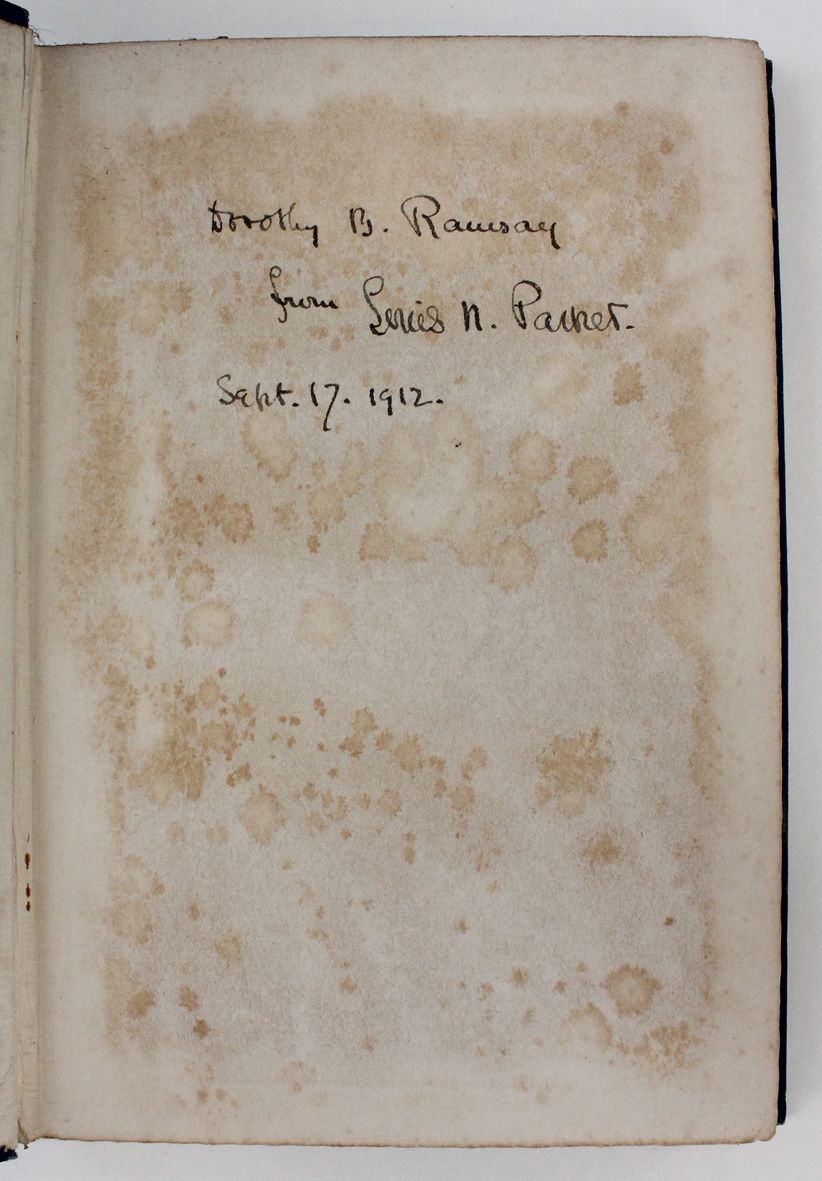 Dorothy B. Ramsay
from Louis N. Parker.
Sept. 17. 1912.